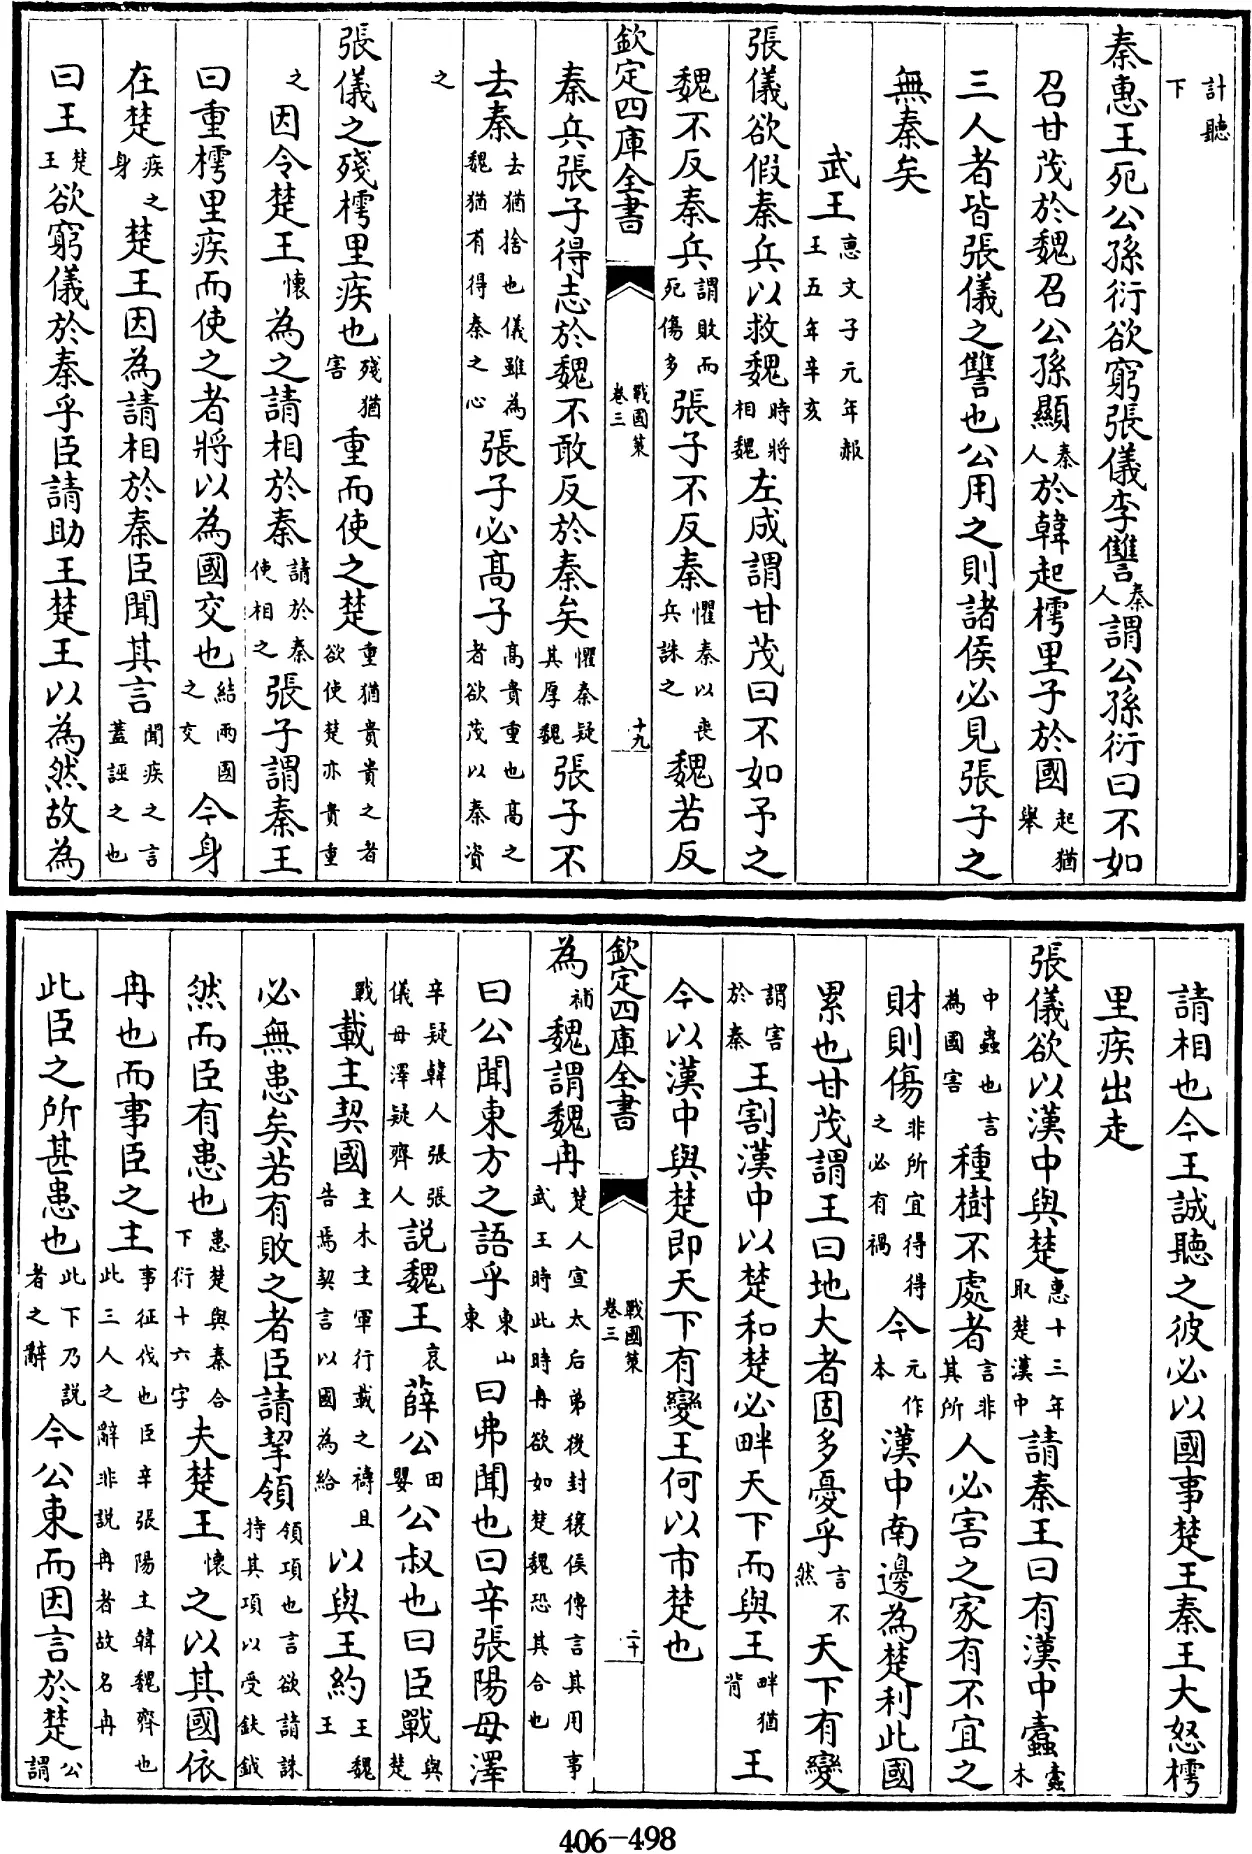 計聽下
秦惠王死公孫衍欲窮張儀李讐秦人謂公孫衍曰不如
召甘茂於魏召公孫顯秦人於韓起樗里子於國起猶舉
三人者皆張儀之讐也公用之則諸侯必見張子之
無秦矣
武王惠文子元年赧王五年辛亥
張儀欲假秦兵以救魏時將相魏左成謂甘茂曰不如予之
魏不反秦兵謂敗而死傷多張子不反秦懼秦以喪兵誅之魏若反
欽定四庫全書 戰國策卷三 十九
秦兵張子得志於魏不敢反於秦矣懼秦疑其厚魏張子不
去秦去猶捨也儀雖為魏猶有得秦之心張子必髙子髙貴重也髙之者欲茂以秦資
之
張儀之殘樗里疾也殘猶害重而使之楚重猶貴貴之者欲使楚亦貴重
之因令楚王懷為之請相於秦請於秦使相之張子謂秦王
曰重樗里疾而使之者將以為國交也結兩國之交今身
在楚疾之身楚王因為請相於秦臣聞其言聞疾之言蓋誣之也
曰王楚王欲窮儀於秦乎臣請助王楚王以為然故為
請相也今王誠聽之彼必以國事楚王秦王大怒樗
里疾出走
張儀欲以漢中與楚惠十三年取楚漢中請秦王曰有漢中蠧蠧木
中蟲也言為國害種樹不處者言非其所人必害之家有不宜之
財則傷非所宜得得之必有禍今元作本漢中南邊為楚利此國
累也甘茂謂王曰地大者固多憂乎言不然天下有變
謂害於秦王割漢中以楚和楚必畔天下而與王畔猶背王
今以漢中與楚即天下有變王何以市楚也
欽定四庫全書 戰國策卷三 二十
為補魏謂魏冉楚人宣太后弟後封穰侯傳言其用事武王時此時冉欲如楚魏恐其合也
曰公聞東方之語乎東山東曰弗聞也曰辛張陽母澤
辛疑韓人張張儀母澤疑齊人說魏王哀薛公田嬰公叔也曰臣戰與楚
戰載主契國主木主軍行載之禱且告焉契言以國為給以與王約王魏王
必無患矣若有敗之者臣請挈領領項也言欲請誅持其項以受鈇鉞
然而臣有患也患楚與秦合下衍十六字夫楚王懷之以其國依
冉也而事臣之主事征伐也臣辛張陽主韓魏齊也此三人之辭非說冉者故名冉
此臣之所甚患也此下乃說者之辭今公東而因言於楚公謂
406-498